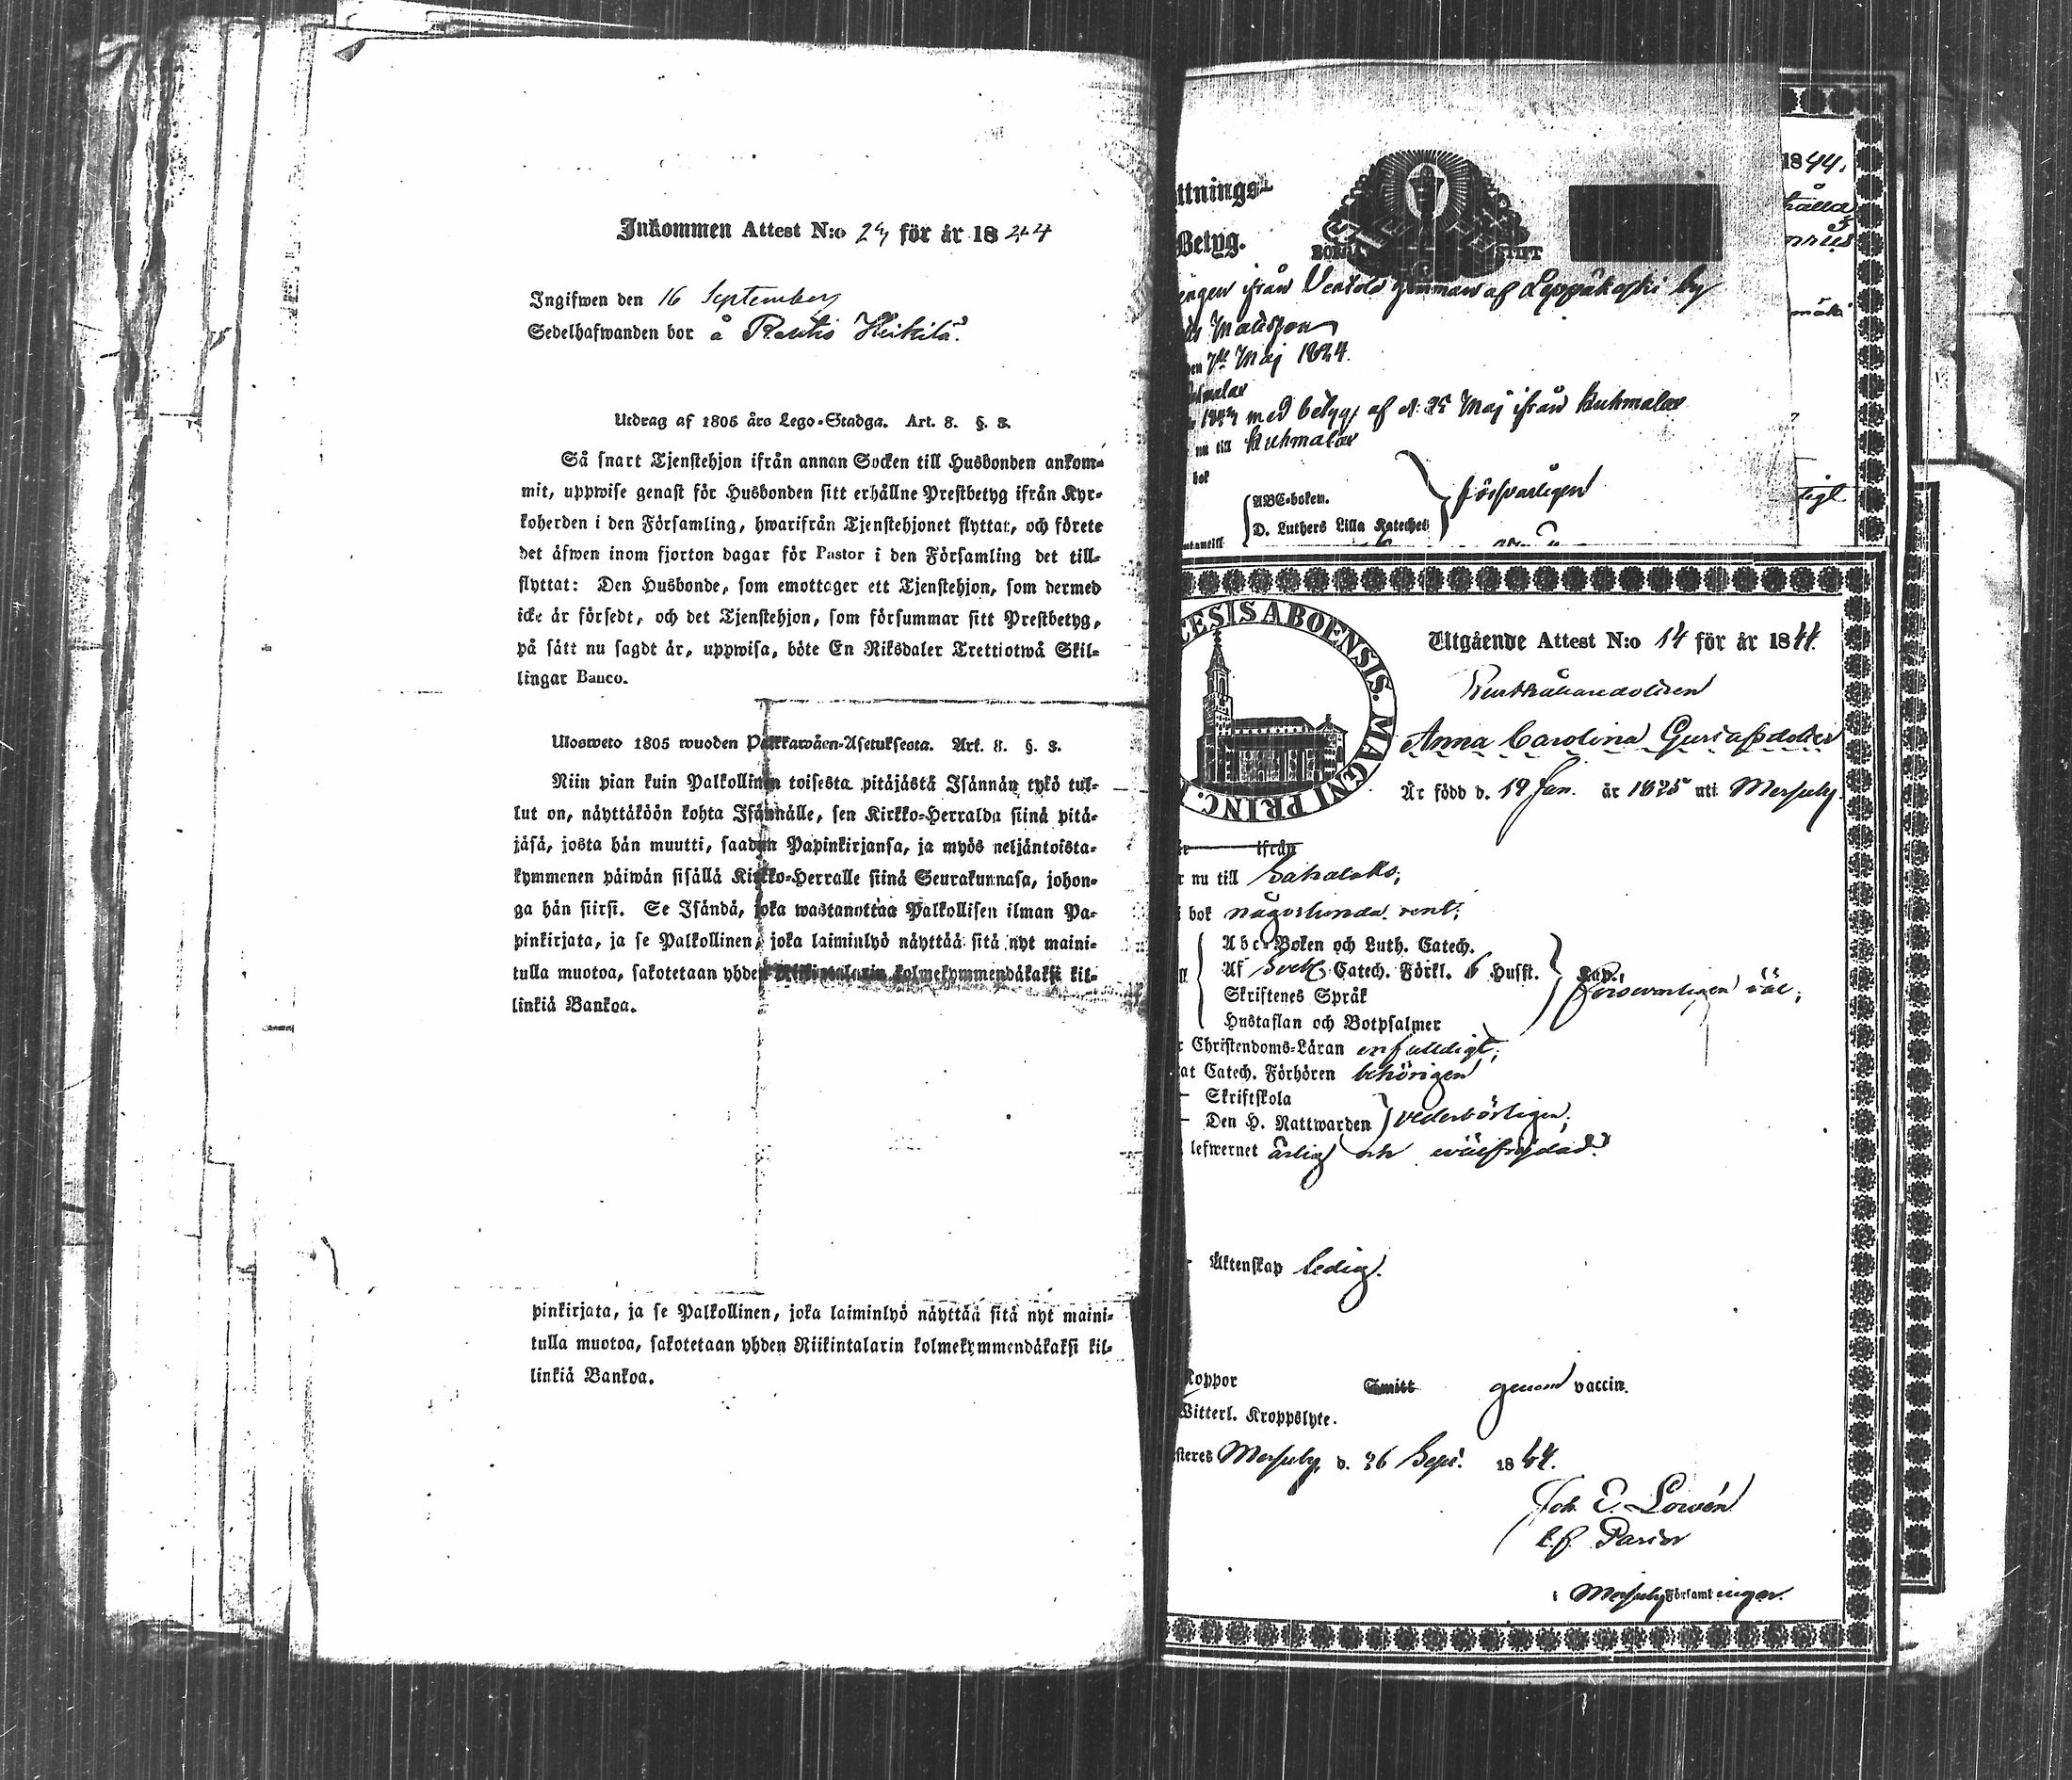 Inkommen Attest N:o 29 för år 1844
Ingifwen den 16 September
Sedelhafwanden bor å Rautio Heikilä.
Utdrag af 1805 års Lego-Stadga. Art. 8. §. 3.
Så snart Tjenstehjon ifrån annan Socken till Husbonden ankom-
mit, uppwise genast för Husbonden sitt erhållne Prestbetyg ifrån Kyr-
koherden i den Församling, hwarifrån Tjenstehjonet flyttat, och förete
det äfwen inom fjorton dagar för Pastor i den Församling det till-
flyttat: Den Husbonde, som emottager ett Tjenstehjon, som dermed
icke är försedt, och det Tjenstehjon, som försummar sitt Prestbetyg,
på sätt nu sagdt är, uppwisa, böte En Riksdaler Trettiotwå Skil-
lingar Banco.
Ulosweto 1805 wuoden Palkkawäen-Asetuksesta. Art. 8. §. 3.
Niin pian kuin Palkollinen toisesta pitäjästä Isännän tykö tul-
lut on, näyttäköön kohta Isännälle, sen Kirkko-Herralda siinä pitä-
jäsä, josta hän muutti, saadun Papinkirjansa, ja myös neljäntoista-
kymmenen päiwän sisällä Kirkko-Herralle siinä Seurakunnasa, johon-
ga hän siirsi. Se Isändä, joka wastanottaa Palkollisen ilman Pa-
pinkirjata, ja se Palkollinen, joka laiminlyö näyttää sitä nyt maini-
tulla muotoa, sakotetaan yhden Riikintalarin kolmekymmendäkaksi kil-
linkiä Bankoa.
pinkirjata, ja se Palkollinen, joka laiminlyö näyttää sitä nyt maini-
tulla muotoa, sakotetaan yhden Riikintalarin kolmekymmendäkaksi kil-
linkiä Bankoa.
ttnings-
Betyg.
BORGÅ STIFT
ifrån af Leppäkoski by
Matsson
den 7de Maj 1824.
Kuhmalax
med betyg af d. 25 Maj ifrån Kuhmalax
nu till Kuhmalax
bok
ABC-boken.
D. Luthers Lilla Katechet
försvarligen
utantill
1844.
ESIS ABOENSIS. MAGNI PRINC.
Utgående Attest N:o 14 för år 1844.
Anna Carolina Gustafsdotter
Är född d. 19 Jan. år 1825 uti Mersuby.
ifrån
r nu till Sahalaks;
i bok någorlunda rent;
Abc-Boken och Luth. Catech.
Af Svebel. Catech. Förkl. 6 Husst.
Skriftenes Språk
Hustaflan och Botpsalmer
försvarligen väl;
r Christendoms-Läran enfaldigt;
at Catech. Förhören behörigen
Skriftskola
Den H. Nattwarden
vederbörligen;
lefwernet ärlig och wälfrejdad.
Äktenskap ledig.
Koppor Smitt genom vaccin.
Witterl. Kroppslyte.
steres Mersuby, d. 26 Sept. 1844.
Joh. E. Lowén
E. f. Pastor
i Mersuby Församlingar.